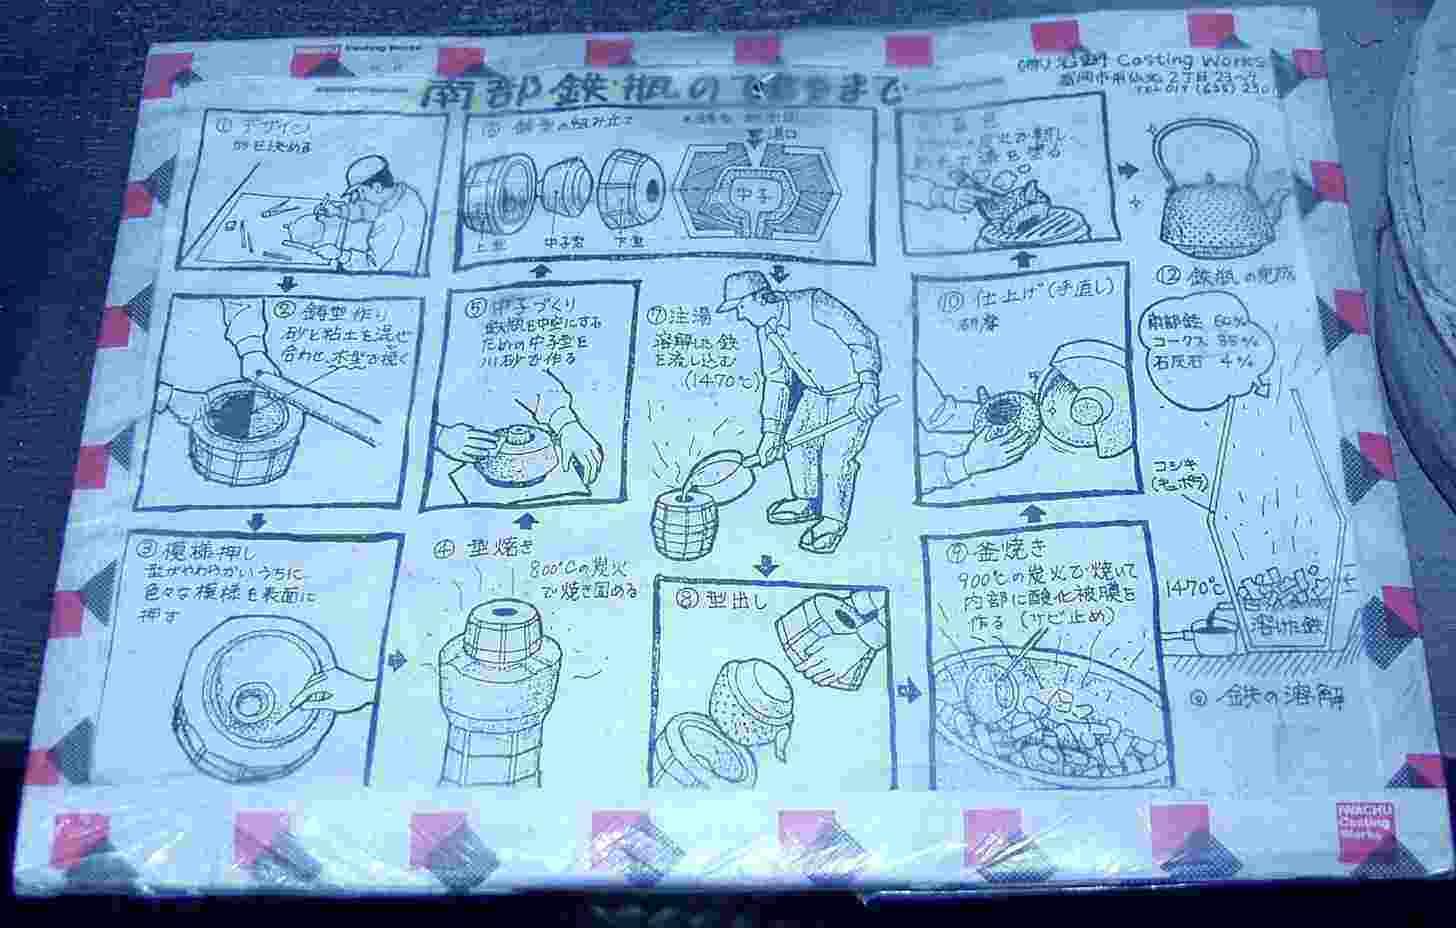 Casting Works
南部鉄瓶のできるまで
Casting Works
盛岡市南仙北2丁目23-
TEL 019 (635) 250
① デザイン
形を決める
② 鋳型作り
砂と粘土を混ぜ
合わせ、木型で挽く
③ 模様押し
型がやわらかいうちに
色々な模様を表面に
押す
④ 型焼き
800℃の炭火
で焼き固める
⑤ 中子づくり
鉄瓶を中空にする
ための中子型を
川砂で作る
⑥ 鋳型の組み立て
湯口
中子
上型
中子型
下型
⑦ 注湯
溶解した鉄
を流し込む
(1470℃)
⑧ 型出し
⑨ 釜焼き
900℃の炭火で焼いて
内部に酸化被膜を
作る (サビ止め)
⑩ 仕上げ(手直し)
研摩
漆を塗る
⑫ 鉄瓶の完成
南部鉄 60%
コークス 35%
石灰石 4%
コシキ
(キュポラ)
1470℃
溶けた鉄
鉄の溶解
IWACHU
Casting
Works